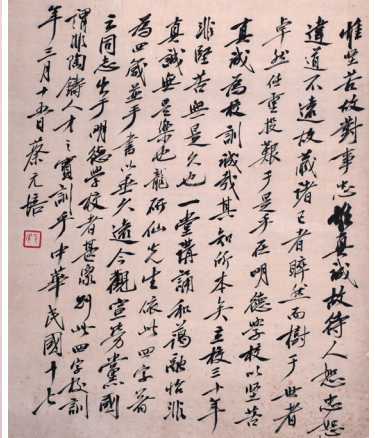 惟坚苦故對事忠惟真誠故待人恕忠恕
違道不遠故藏諸己者睟然而樹于世者
卓然任重投艱于是乎在明德學校以堅苦
真誠為校訓誠哉其知所本矣立校三十年
非堅苦無是久也一堂講誦和藹融怡非
真誠無是樂也龍研仙先生依此四字著
為四箴並手書以垂久遠今觀宣勞黨國
之同志出于明德學校者甚眾則此四字校訓
謂非陶鑄人才之寶訓乎中華民國十七
年三月十五日蔡元培